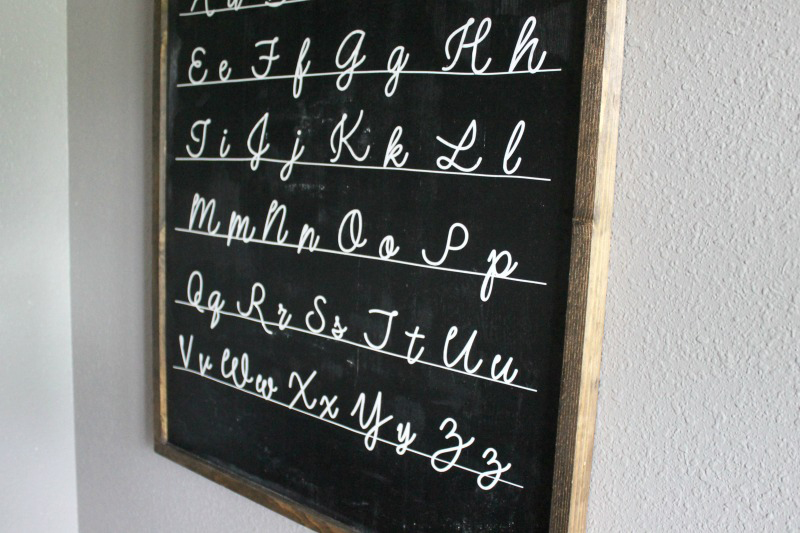 Ee Ff Gg Hh
Ii Jj Kk Ll
Mm Nn Oo Pp
Qq Rr Ss Tt Uu
Vv Ww Xx Yy Zz